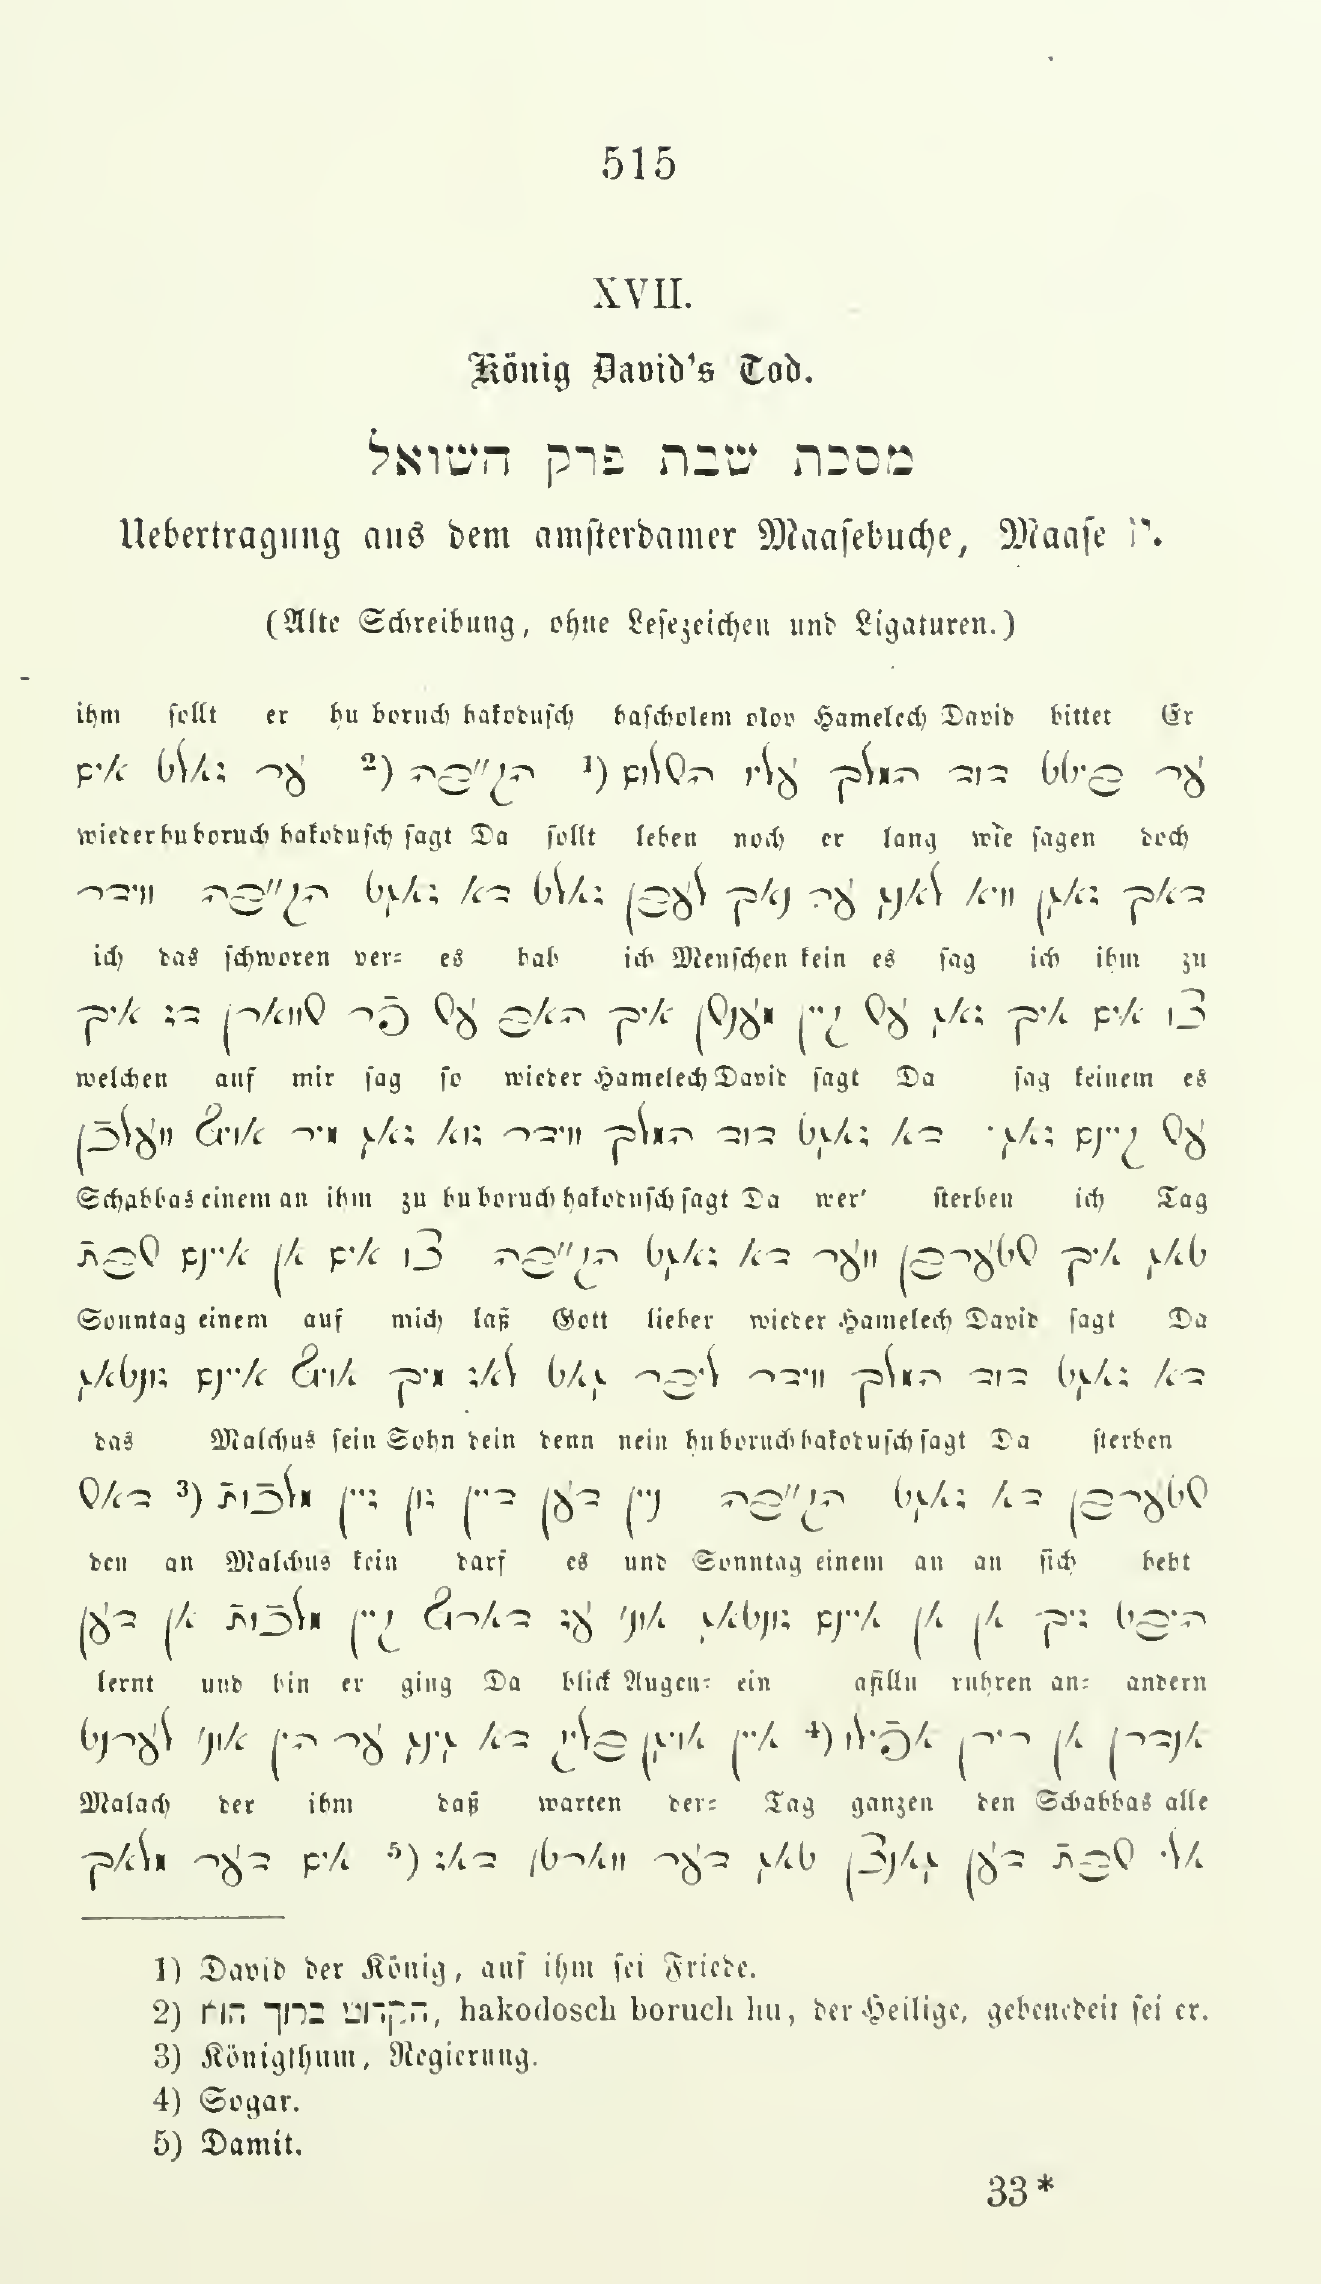 515
XVII.
König David's Tod.
מסכת שבת פרק השואל
Uebertragung aus dem amsterdamer Maasebuche, Maase
(Alte Schreibung, ohne Lesezeichen und Ligaturen.)
ihm sollt er hu boruch hakodusch hascholem olov Hamelech David bittet Er
ער ביטט דוד המלך עליו השלום 1) הק״בה 2) ער זאלט אים
wieder hu boruch hakodusch sagt Da sollt leben noch er lang wie sagen doch
דאך זאגן וויא לאנג ער נאך לעבן זאלט דא זאגט הק״בה ווידר
ich das schworen ver= es hab ich Menschen kein es sag ich ihm zu
צו אים איך זאג עש קיין מענשן איך האב עש פֿר שווארן דז איך
welchen auf mir sag so wieder Hamelech David sagt Da sag keinem es
עש קיינם זאג׳ דא זאגט דוד המלך ווידר זוא זאג מיר אויף וועלכֿן
Schabbas einem an ihm zu hu boruch hakodusch sagt Da wer' sterben ich Tag
טאג איך שטערבן ווער דא זאגט הק״בה צו אים אן איינם שבתֿ
Sonntag einem auf mich laß Gott lieber wieder Hamelech David sagt Da
דא זאגט דוד המלך ווידר ליבר גאט לאז מיך אויף איינם זונטאג
das Malchus sein Sohn dein denn nein hu boruch hakodusch sagt Da sterben
שטערבן דא זאגט הק״בה ניין דען דיין זון זיין מלכֿותֿ 3) דאש
den an Malchus kein darf es und Sonntag einem an an sich hebt
היבט זיך אן אן איינם זונטאג אונ׳ עז דארף קיין מלכֿותֿ אן דען
lernt und hin er ging Da blick Augen= ein afillu ruhren an= andern
אנדרן אן רירן אפֿילו 4) איין אויגן בליק דא גינג ער הין אונ׳ לערנט
Malach der ihm daß warten der= Tag ganzen den Schabbas alle
אלי שבתֿ דען גאנצן טאג דער ווארטן דאז 5) אים דער מלאך
1) David der König, auf ihm sei Friede.
2) הקדוש ברוך הוא, hakodosch boruch hu, der Heilige, gebenedeit sei er.
3) Königthum, Regierung.
4) Sogar.
5) Damit.
33*